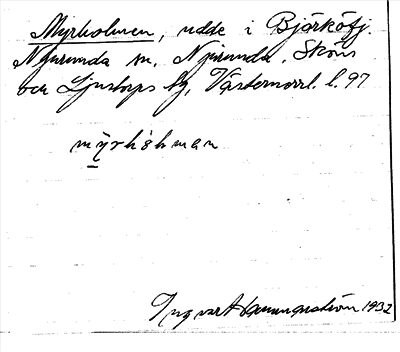 Myrholmen, udde i Björköfj.
Njurunda sn, Njurunda, Sköns
och Ljustorps tg, Västernorrl. l. 97
myrhòlman
Ingvar Hammarström 1932